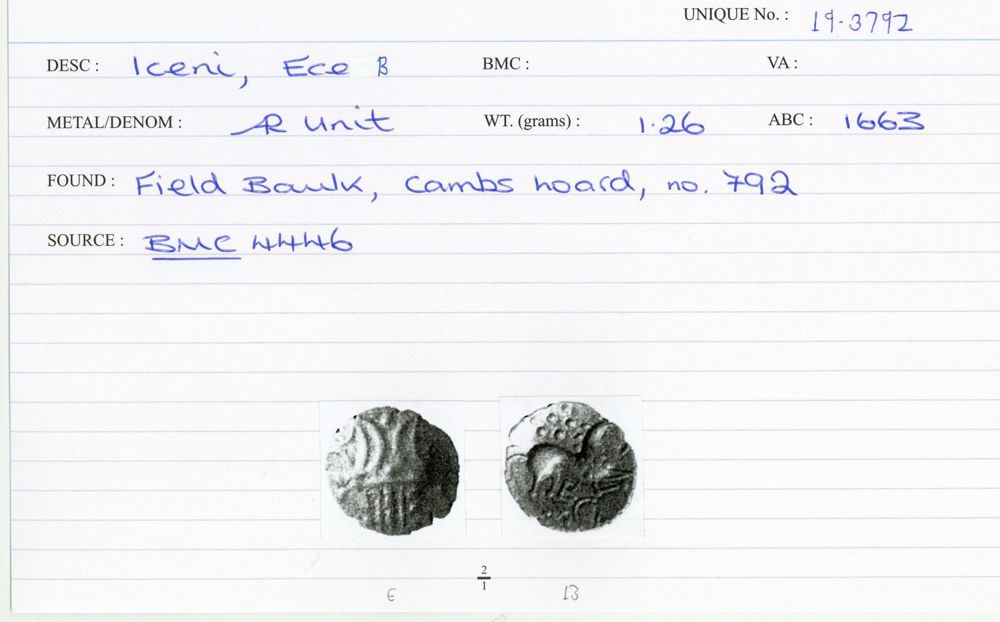 UNIQUE No. : 19-3792
DESC : Iceni, Ece B BMC : VA :
METAL/DENOM : AR Unit WT. (grams) : 1.26 ABC : 1663
FOUND : Field Bawlk, Cambs hoard, no. 792
SOURCE : BMC 4446
2
1
E 13